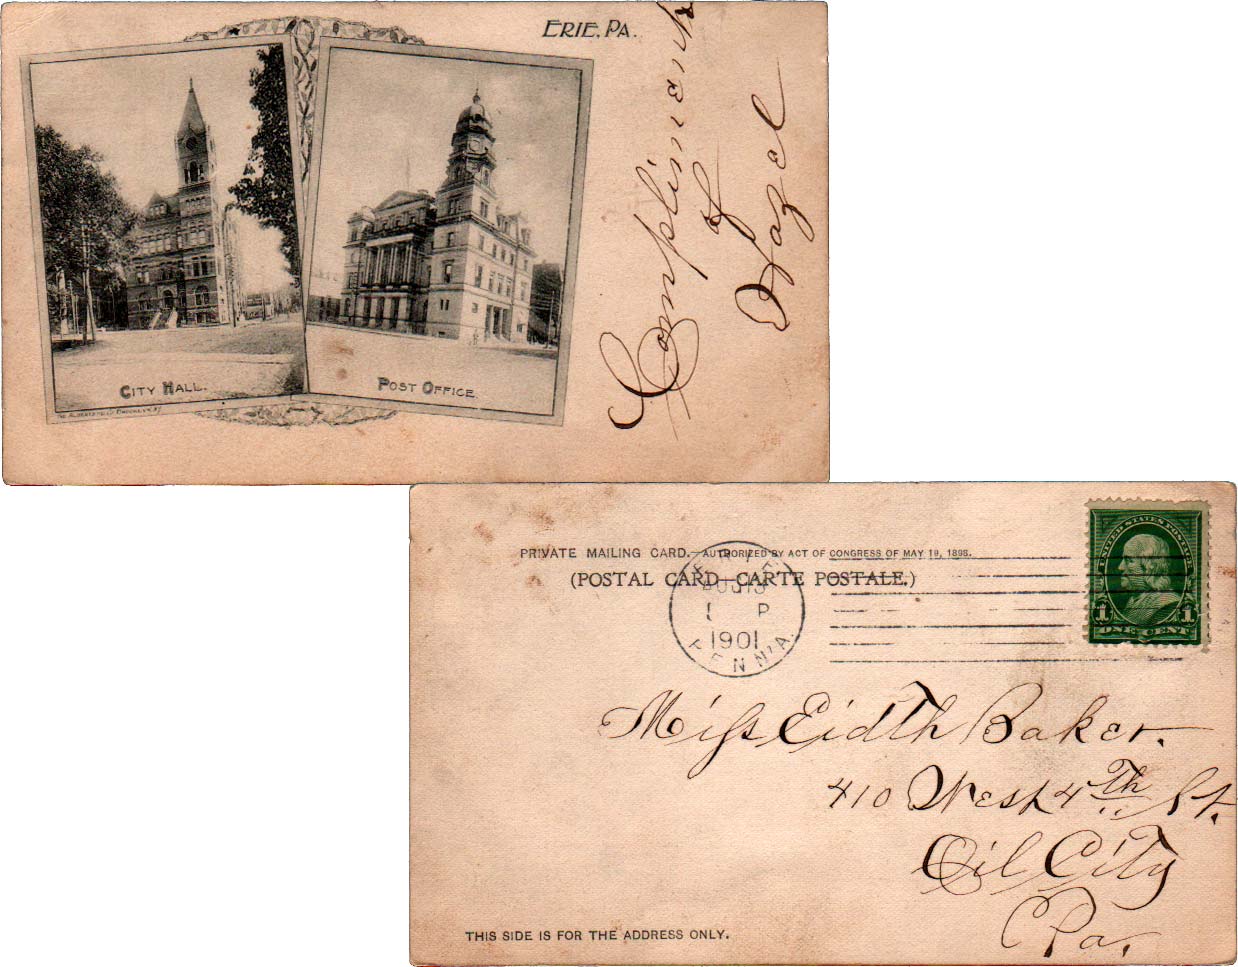 ERIE, PA.
CITY HALL.
POST OFFICE.
Compliments
of
Hazel
PRIVATE MAILING CARD.—AUTHORIZED BY ACT OF CONGRESS OF MAY 19, 1898.
(POSTAL CARD—CARTE POSTALE.)
ERIE
AUG 13
1 P
1901
PENN'A.
UNITED STATES POSTAGE
1 1
ONE CENT
Miss Eidth Baker.
410 West 4th St.
Oil City
Pa.
THIS SIDE IS FOR THE ADDRESS ONLY.